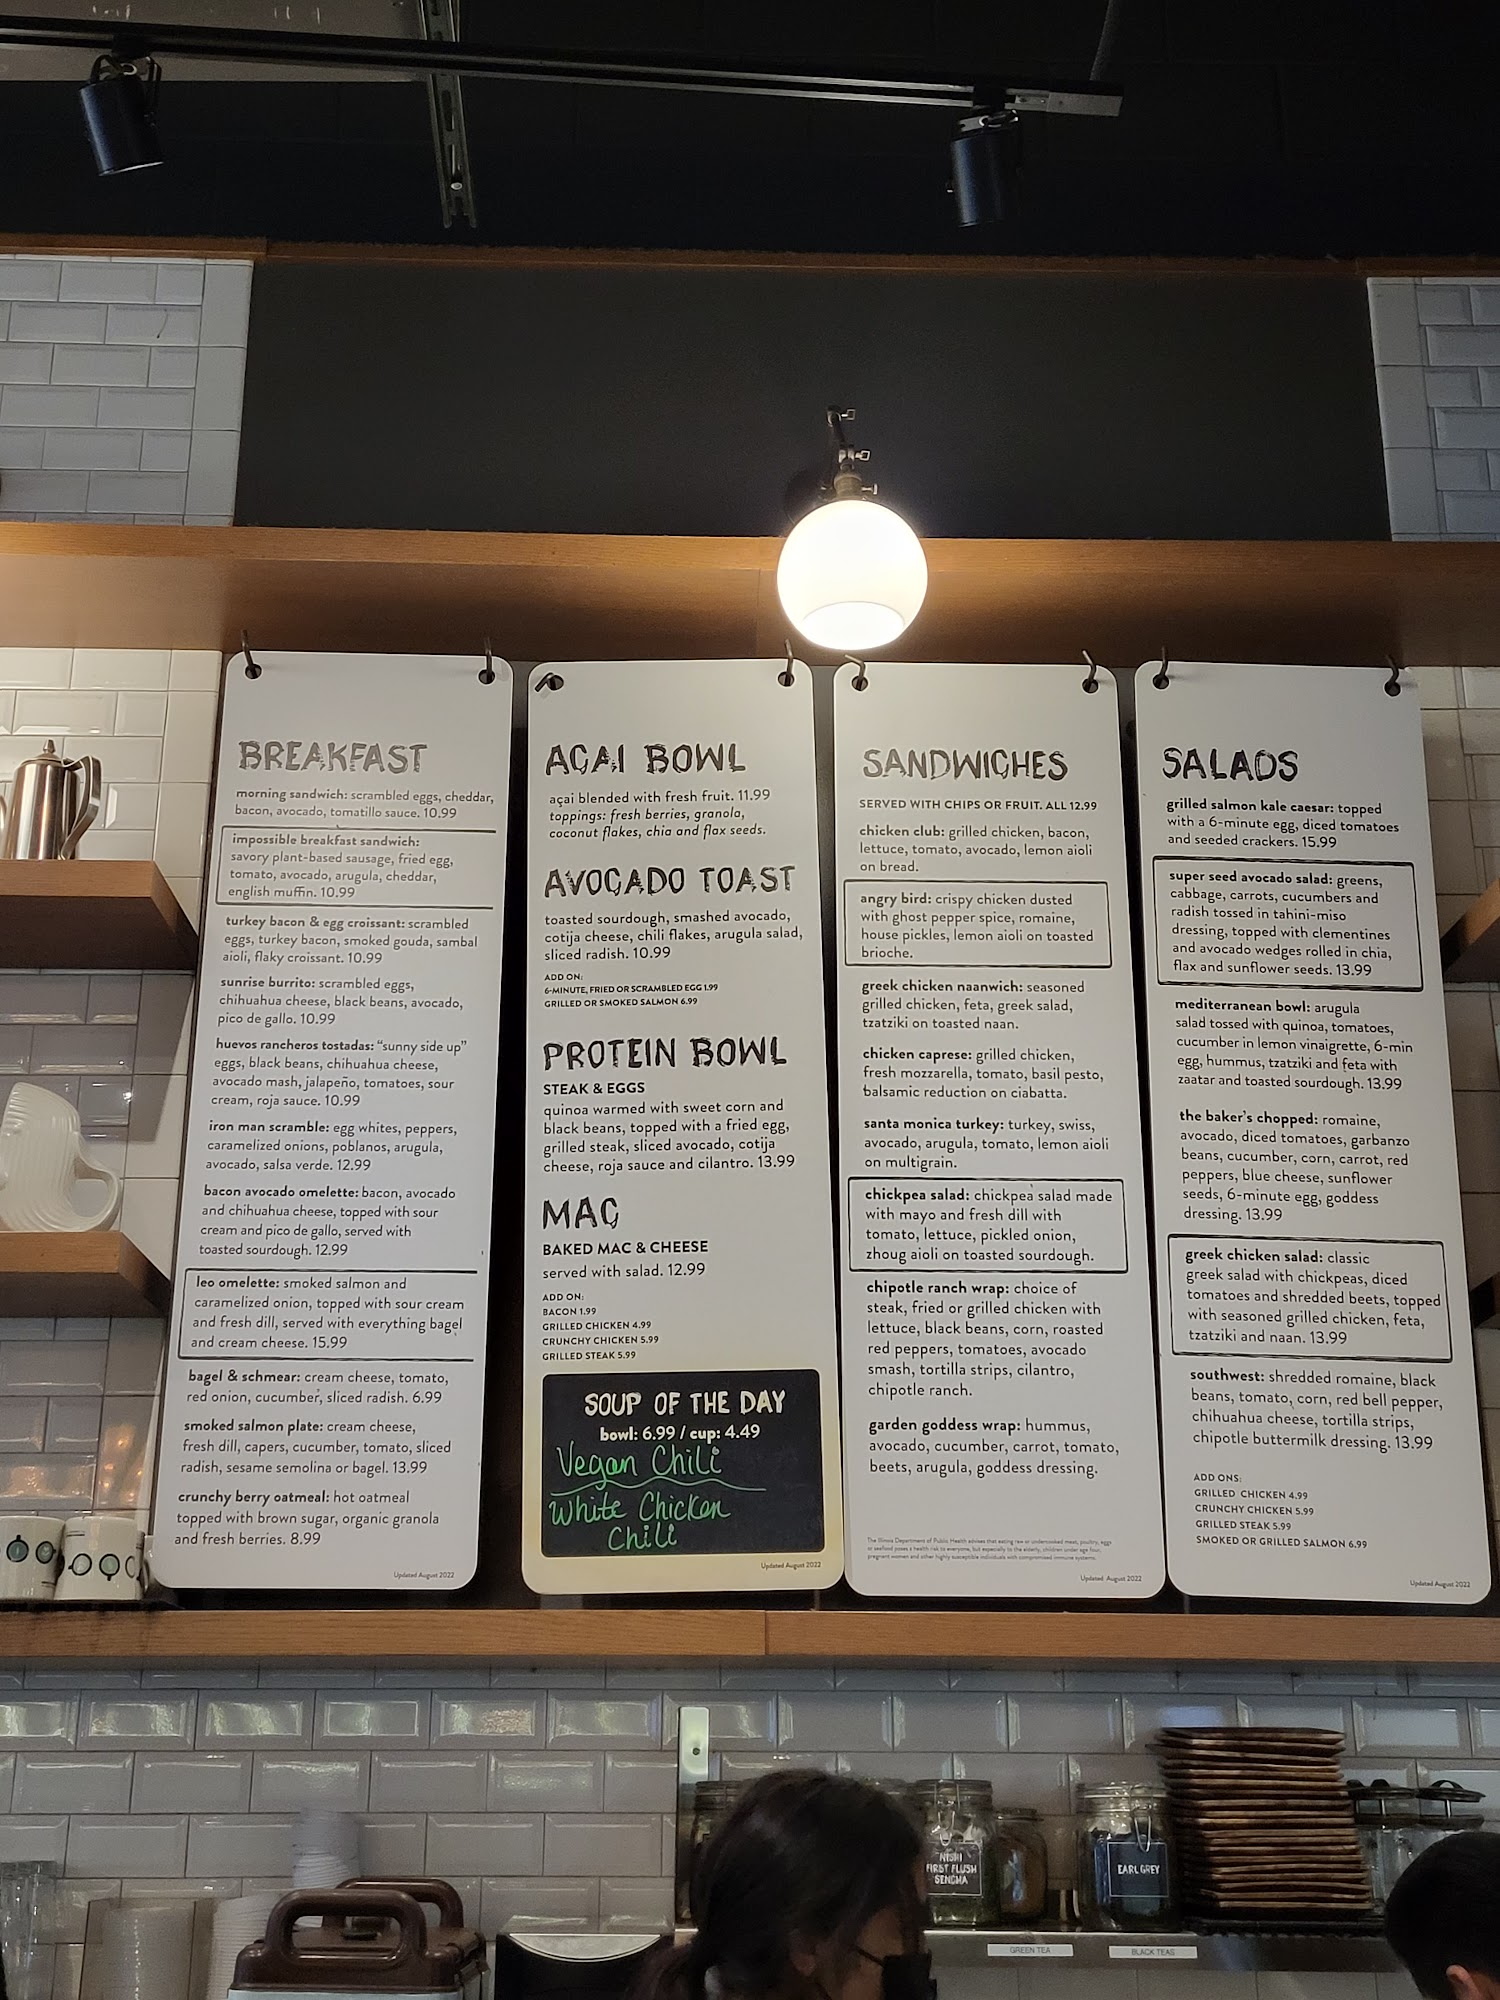 BREAKFAST
morning sandwich: scrambled eggs, cheddar,
bacon, avocado, tomatillo sauce. 10.99
impossible breakfast sandwich:
savory plant-based sausage, fried egg,
tomato, avocado, arugula, cheddar,
english muffin. 10.99
turkey bacon & egg croissant: scrambled
eggs, turkey bacon, smoked gouda, sambal
aioli, flaky croissant. 10.99
sunrise burrito: scrambled eggs,
chihuahua cheese, black beans, avocado,
pico de gallo. 10.99
huevos rancheros tostadas: "sunny side up"
eggs, black beans, chihuahua cheese,
avocado mash, jalapeño, tomatoes, sour
cream, roja sauce. 10.99
iron man scramble: egg whites, peppers,
caramelized onions, poblanos, arugula,
avocado, salsa verde. 12.99
bacon avocado omelette: bacon, avocado
and chihuahua cheese, topped with sour
cream and pico de gallo, served with
toasted sourdough. 12.99
leo omelette: smoked salmon and
caramelized onion, topped with sour cream
and fresh dill, served with everything bagel
and cream cheese. 15.99
bagel & schmear: cream cheese, tomato,
red onion, cucumber, sliced radish. 6.99
smoked salmon plate: cream cheese,
fresh dill, capers, cucumber, tomato, sliced
radish, sesame semolina or bagel. 13.99
crunchy berry oatmeal: hot oatmeal
topped with brown sugar, organic granola
and fresh berries. 8.99
Updated August 2022
AÇAI BOWL
açai blended with fresh fruit. 11.99
toppings: fresh berries, granola,
coconut flakes, chia and flax seeds.
AVOCADO TOAST
toasted sourdough, smashed avocado,
cotija cheese, chili flakes, arugula salad,
sliced radish. 10.99
ADD ON:
6-MINUTE, FRIED OR SCRAMBLED EGG 1.99
GRILLED OR SMOKED SALMON 6.99
PROTEIN BOWL
STEAK & EGGS
quinoa warmed with sweet corn and
black beans, topped with a fried egg,
grilled steak, sliced avocado, cotija
cheese, roja sauce and cilantro. 13.99
MAC
BAKED MAC & CHEESE
served with salad. 12.99
ADD ON:
BACON 1.99
GRILLED CHICKEN 4.99
CRUNCHY CHICKEN 5.99
GRILLED STEAK 5.99
SOUP OF THE DAY
bowl: 6.99 / cup: 4.49
Vegan Chili
White Chicken
Chili
Updated August 2022
SANDWICHES
SERVED WITH CHIPS OR FRUIT. ALL 12.99
chicken club: grilled chicken, bacon,
lettuce, tomato, avocado, lemon aioli
on bread.
angry bird: crispy chicken dusted
with ghost pepper spice, romaine,
house pickles, lemon aioli on toasted
brioche.
greek chicken naanwich: seasoned
grilled chicken, feta, greek salad,
tzatziki on toasted naan.
chicken caprese: grilled chicken,
fresh mozzarella, tomato, basil pesto,
balsamic reduction on ciabatta.
santa monica turkey: turkey, swiss,
avocado, arugula, tomato, lemon aioli
on multigrain.
chickpea salad: chickpea salad made
with mayo and fresh dill with
tomato, lettuce, pickled onion,
zhoug aioli on toasted sourdough.
chipotle ranch wrap: choice of
steak, fried or grilled chicken with
lettuce, black beans, corn, roasted
red peppers, tomatoes, avocado
smash, tortilla strips, cilantro,
chipotle ranch.
garden goddess wrap: hummus,
avocado, cucumber, carrot, tomato,
beets, arugula, goddess dressing.
The Illinois Department of Public Health advises that eating raw or undercooked meat, poultry, eggs
or seafood poses a health risk to everyone, but especially to the elderly, children under age four,
pregnant women and other highly susceptible individuals with compromised immune systems.
Updated August 2022
SALADS
grilled salmon kale caesar: topped
with a 6-minute egg, diced tomatoes
and seeded crackers. 15.99
super seed avocado salad: greens,
cabbage, carrots, cucumbers and
radish tossed in tahini-miso
dressing, topped with clementines
and avocado wedges rolled in chia,
flax and sunflower seeds. 13.99
mediterranean bowl: arugula
salad tossed with quinoa, tomatoes,
cucumber in lemon vinaigrette, 6-min
egg, hummus, tzatziki and feta with
zaatar and toasted sourdough. 13.99
the baker's chopped: romaine,
avocado, diced tomatoes, garbanzo
beans, cucumber, corn, carrot, red
peppers, blue cheese, sunflower
seeds, 6-minute egg, goddess
dressing. 13.99
greek chicken salad: classic
greek salad with chickpeas, diced
tomatoes and shredded beets, topped
with seasoned grilled chicken, feta,
tzatziki and naan. 13.99
southwest: shredded romaine, black
beans, tomato, corn, red bell pepper,
chihuahua cheese, tortilla strips,
chipotle buttermilk dressing. 13.99
ADD ONS:
GRILLED CHICKEN 4.99
CRUNCHY CHICKEN 5.99
GRILLED STEAK 5.99
SMOKED OR GRILLED SALMON 6.99
Updated August 2022
NISHI
FIRST FLUSH
SENCHA
EARL GREY
GREEN TEA
BLACK TEAS